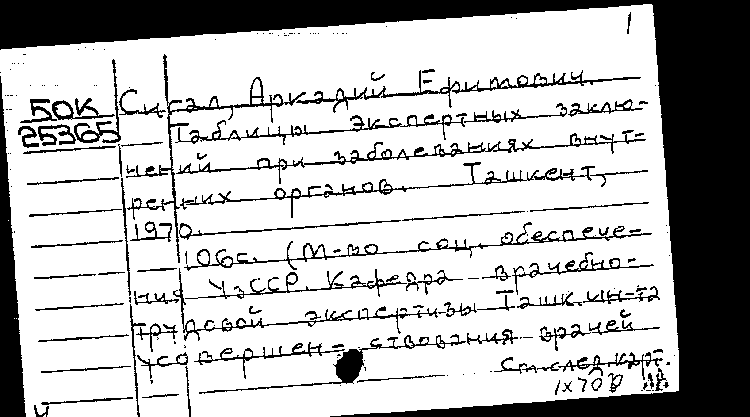 1
50К
25365
Сигал, Аркадий Ефимович.
Таблицы экспертных заклю-
чений при заболеваниях внут-
ренних органов. Ташкент,
1970.
106с. (М-во соц. обеспече-
ния УзССР. Кафедра врачебно-
трудовой экспертизы Ташк. ин-та
усовершен-ствования врачей
См.след.карт.